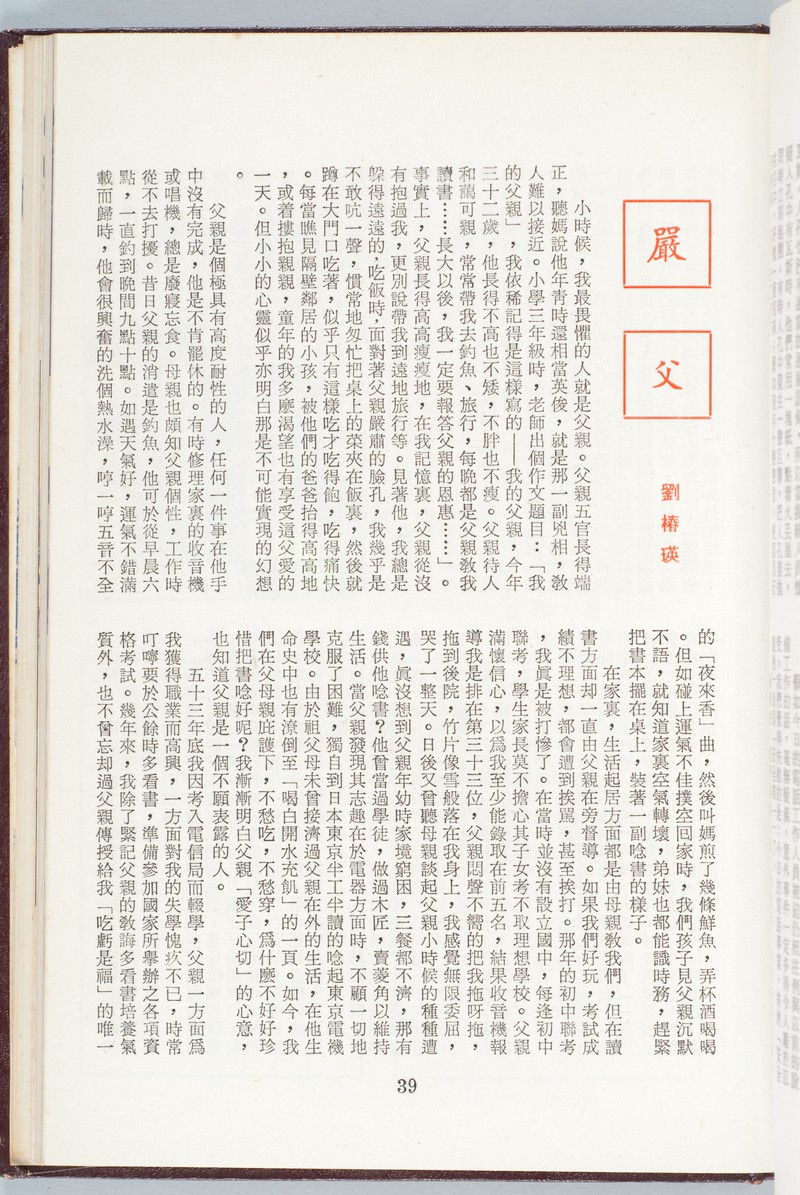 嚴父
劉椿瑛
小時候，我最畏懼的人就是父親。父親五官長得端
正，聽媽說他年靑時還相當英俊，就是那一副兇相，敎
人難以接近。小學三年級時，老師出個作文題目：「我
的父親」，我依稀記得是這樣寫的——我的父親，今年
三十二歲，他長得不高也不矮，不胖也不瘦。父親待人
和藹可親，常常帶我去釣魚、旅行，每晚都是父親敎我
讀書……長大以後，我一定要報答父親的恩惠……」。
事實上，父親長得高高瘦瘦地，在我記憶裏，父親從沒
有抱過我，更別說帶我到遠地旅行等。見著他，我總是
躱得遠遠的，吃飯時，面對著父親嚴肅的臉孔，我幾乎是
不敢吭一聲，慣常地匆忙把桌上的菜夾在飯裏，然後就
蹲在大門口吃著，似乎只有這樣吃才吃得飽，吃得痛快
。每當瞧見隔壁鄰居的小孩，被他們的爸爸抬得高高地
，或着摟抱親親，童年的我多麼渴望也有享受這父愛的
一天。但小小的心靈似乎亦明白那是不可能實現的幻想
。
父親是個極具有高度耐性的人，任何一件事在他手
中沒有完成，他是不肯罷休的。有時修理家裏的收音機
或唱機，總是廢寢忘食。母親也頗知父親個性，工作時
從不去打擾。昔日父親的消遣是釣魚，他可於從早晨六
點，一直釣到晚間九點十點。如遇天氣好，運氣不錯滿
載而歸時，他會很興奮的洗個熱水澡，哼一哼五音不全
的「夜來香」曲，然後叫媽煎了幾條鮮魚，弄杯酒喝喝
。但如碰上運氣不佳撲空回家時，我們孩子見父親沉默
不語，就知道家裏空氣轉壞，弟妹也都能識時務，趕緊
把書本擺在桌上，裝著一副唸書的樣子。
在家裏，生活起居方面都是由母親敎我們，但在讀
書方面却一直由父親在旁督導。如果我們好玩，考試成
績不理想，都會遭到挨罵，甚至挨打。那年的初中聯考
，我眞是被打慘了。在當時並沒有設立國中，每逢初中
聯考，學生家長莫不擔心其子女考不取理想學校。父親
滿懷信心，以爲我至少能錄取在前五名，結果收音機報
導我是排在第三十三位，父親悶聲不嚮的把我拖呀拖，
拖到後院，竹片像雪般落在我身上，我感覺無限委屈，
哭了一整天。日後又曾聽母親談起父親小時候的種種遭
遇，眞沒想到父親年幼時家境窮困，三餐都不濟，那有
錢供他唸書？他曾當過學徒，做過木匠，賣菱角以維持
生活。當父親發現其志趣在於電器方面時，不顧一切地
克服了困難，獨自到日本東京半工半讀的唸起東京電機
學校。由於祖父母未曾接濟過父親在外的生活，在他生
命史中也有潦倒至「喝白開水充飢」的一頁。如今，我
們在父母親庇護下，不愁吃，不愁穿，爲什麼不好好珍
惜把書唸好呢？我漸漸明白父親「愛子心切」的心意，
也知道父親是一個不願表露的人。
五十三年底我因考入電信局而輟學，父親一方面爲
我獲得職業而高興，一方面對我的失學愧疚不已，時常
叮嚀要於公餘時多看書，準備參加國家所舉辦之各項資
格考試。幾年來，我除了緊記父親的敎誨多看書培養氣
質外，也不曾忘却過父親傳授給我「吃虧是福」的唯一
39